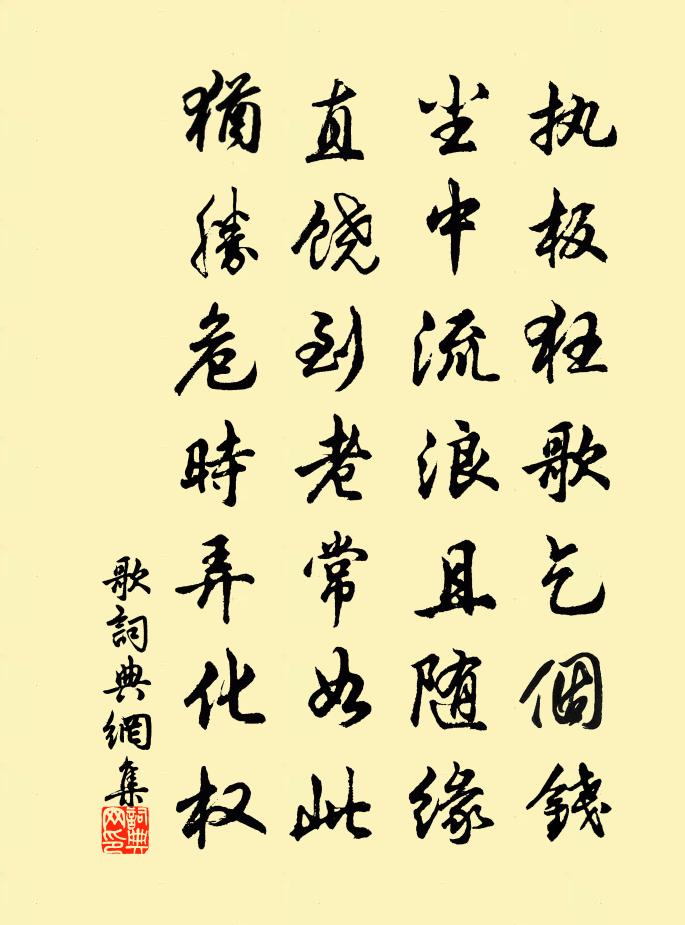 执板狂歌乞個錢
尘中流浪且随缘
直饶到老常如此
猶勝危時弄化权
歌詞典網集
詞典网印